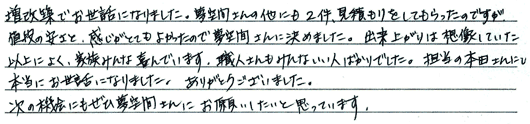 増改築でお世話になりました。夢空間さんの他にも2件、見積もりをしてもらったのですが
値段の安さと、感じがとてもよかったので夢空間さんに決めました。出来上がりは想像していた
以上によく、家族みんな喜んでいます。職人さんもみんないい人ばかりでした。担当の本田さんにも
本当にお世話になりました。ありがとうございました。
次の機会にもぜひ夢空間さんにお願いしたいと思っています。